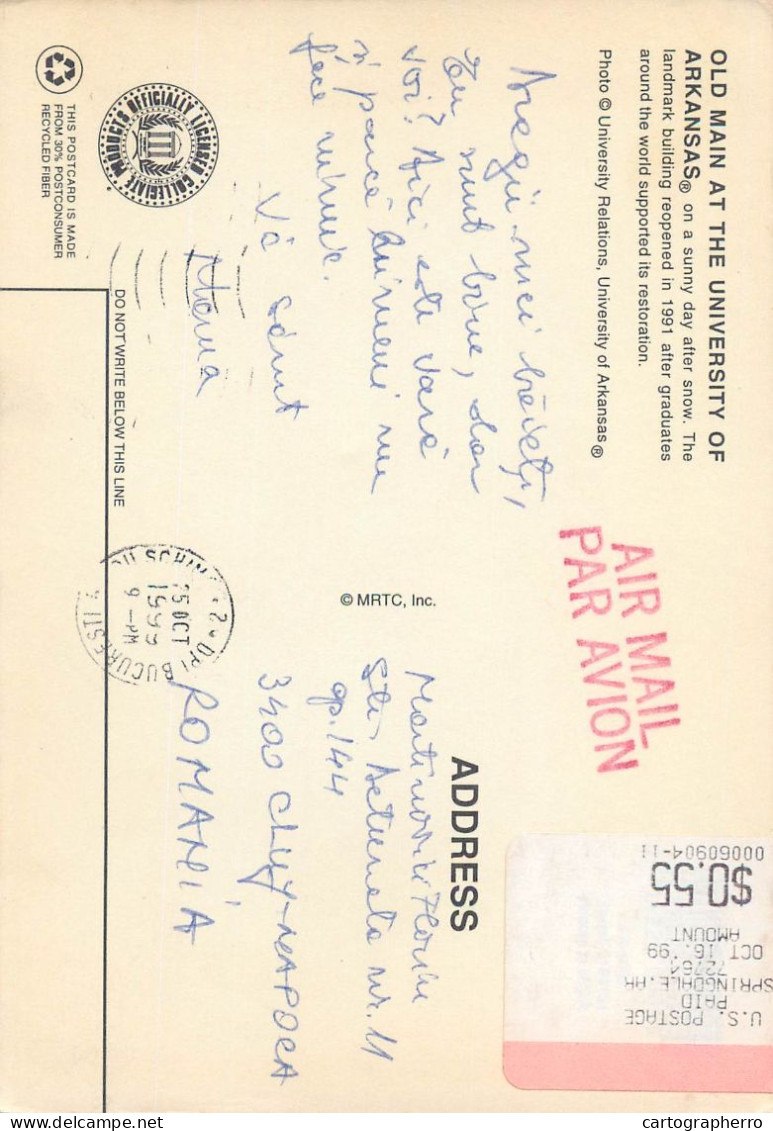 OLD MAIN AT THE UNIVERSITY OF
ARKANSAS® on a sunny day after snow. The
landmark building reopened in 1991 after graduates
around the world supported its restoration.
Photo © University Relations, University of Arkansas®
mei băieți,
Eu sunt bine, dar
voi? Aici este vară
și parcă nimeni nu
face nimic.
Vă sărut
Mama
OFFICIALLY LICENSED COLLEGIATE PRODUCTS
THIS POSTCARD IS MADE
FROM 30% POSTCONSUMER
RECYCLED FIBER
DO NOT WRITE BELOW THIS LINE
© MRTC, Inc.
AIR MAIL
PAR AVION
ADDRESS
Str. nr. 11
ap. 144
3400 CLUJ-NAPOCA
ROMANIA
25 OCT
1999
9-PM
BUCURESTI
U.S. POSTAGE
PAID
SPRINGDALE.AR
72764
OCT 16.'99
AMOUNT
$0.55
00060904-11
cartographerro